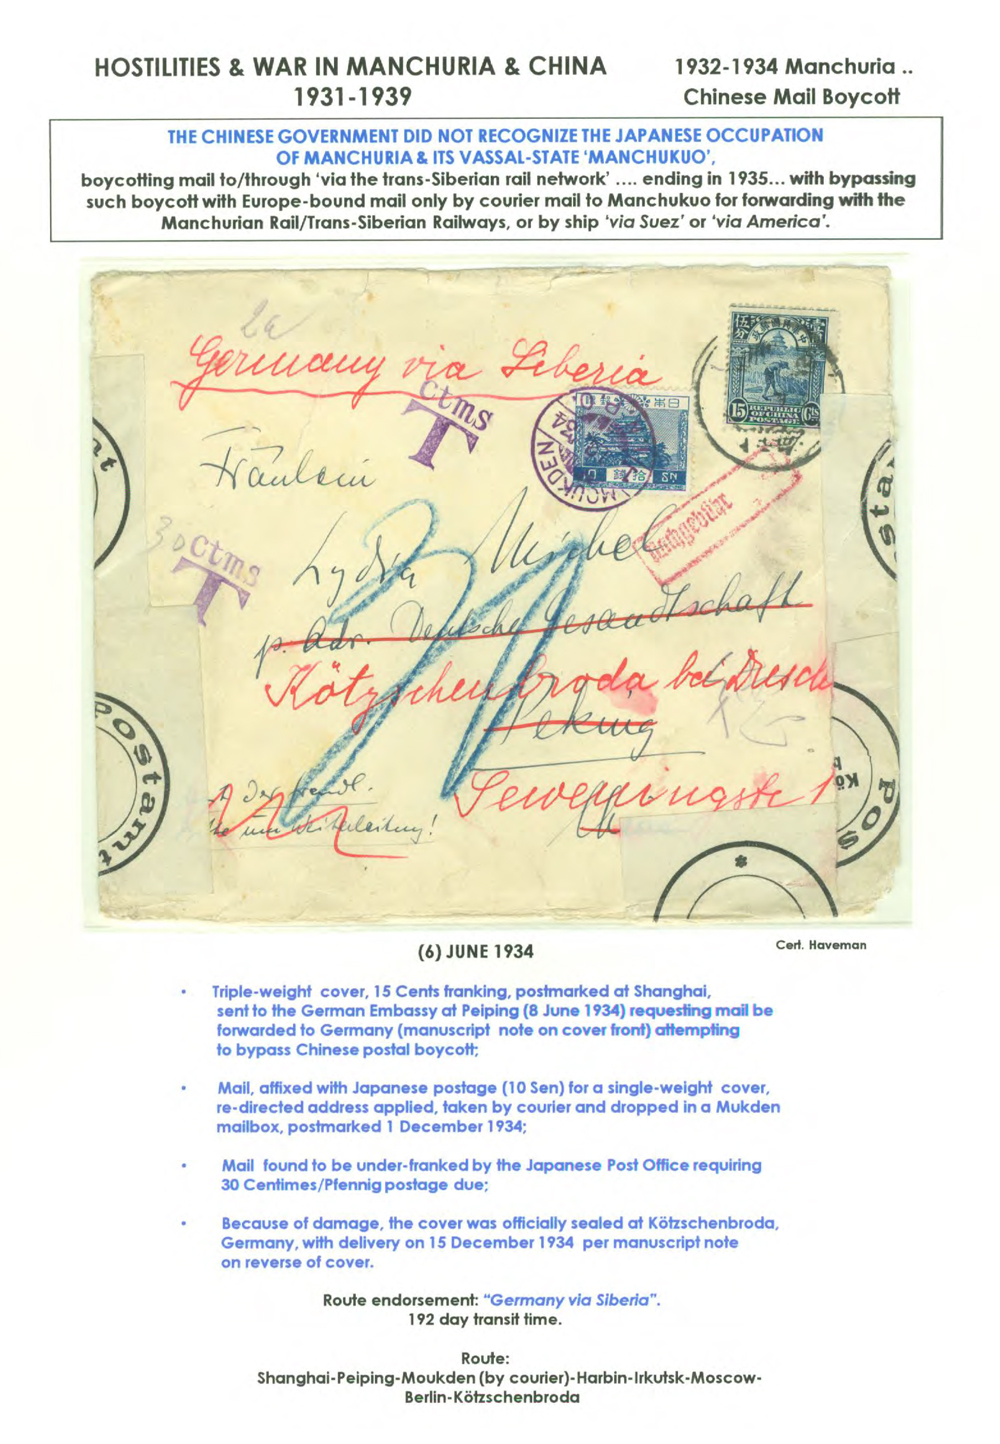 HOSTILITIES & WAR IN MANCHURIA & CHINA
1931-1939
1932-1934 Manchuria ..
Chinese Mail Boycott
THE CHINESE GOVERNMENT DID NOT RECOGNIZE THE JAPANESE OCCUPATION
OF MANCHURIA & ITS VASSAL-STATE 'MANCHUKUO',
boycotting mail to/through 'via the trans-Siberian rail network' .... ending in 1935... with bypassing
such boycott with Europe-bound mail only by courier mail to Manchukuo for forwarding with the
Manchurian Rail/Trans-Siberian Railways, or by ship 'via Suez' or 'via America'.
Germany via Siberia
ctms
T
MOUKDEN
15 REPUBLIC OF CHINA POSTAGE Cts
Fräulein
Nachgebühr
30 ctms
T
Lydia Mischel
p. Adr. Deutsche Gesandtschaft
Kötzschenbroda bei Dresde
Peking
Weiterleitung!
Postamt
(6) JUNE 1934
Cert. Haveman
• Triple-weight cover, 15 Cents franking, postmarked at Shanghai,
sent to the German Embassy at Peiping (8 June 1934) requesting mail be
forwarded to Germany (manuscript note on cover front) attempting
to bypass Chinese postal boycott;
• Mail, affixed with Japanese postage (10 Sen) for a single-weight cover,
re-directed address applied, taken by courier and dropped in a Mukden
mailbox, postmarked 1 December 1934;
• Mail found to be under-franked by the Japanese Post Office requiring
30 Centimes/Pfennig postage due;
• Because of damage, the cover was officially sealed at Kötzschenbroda,
Germany, with delivery on 15 December 1934 per manuscript note
on reverse of cover.
Route endorsement: "Germany via Siberia".
192 day transit time.
Route:
Shanghai-Peiping-Moukden (by courier)-Harbin-Irkutsk-Moscow-
Berlin-Kötzschenbroda